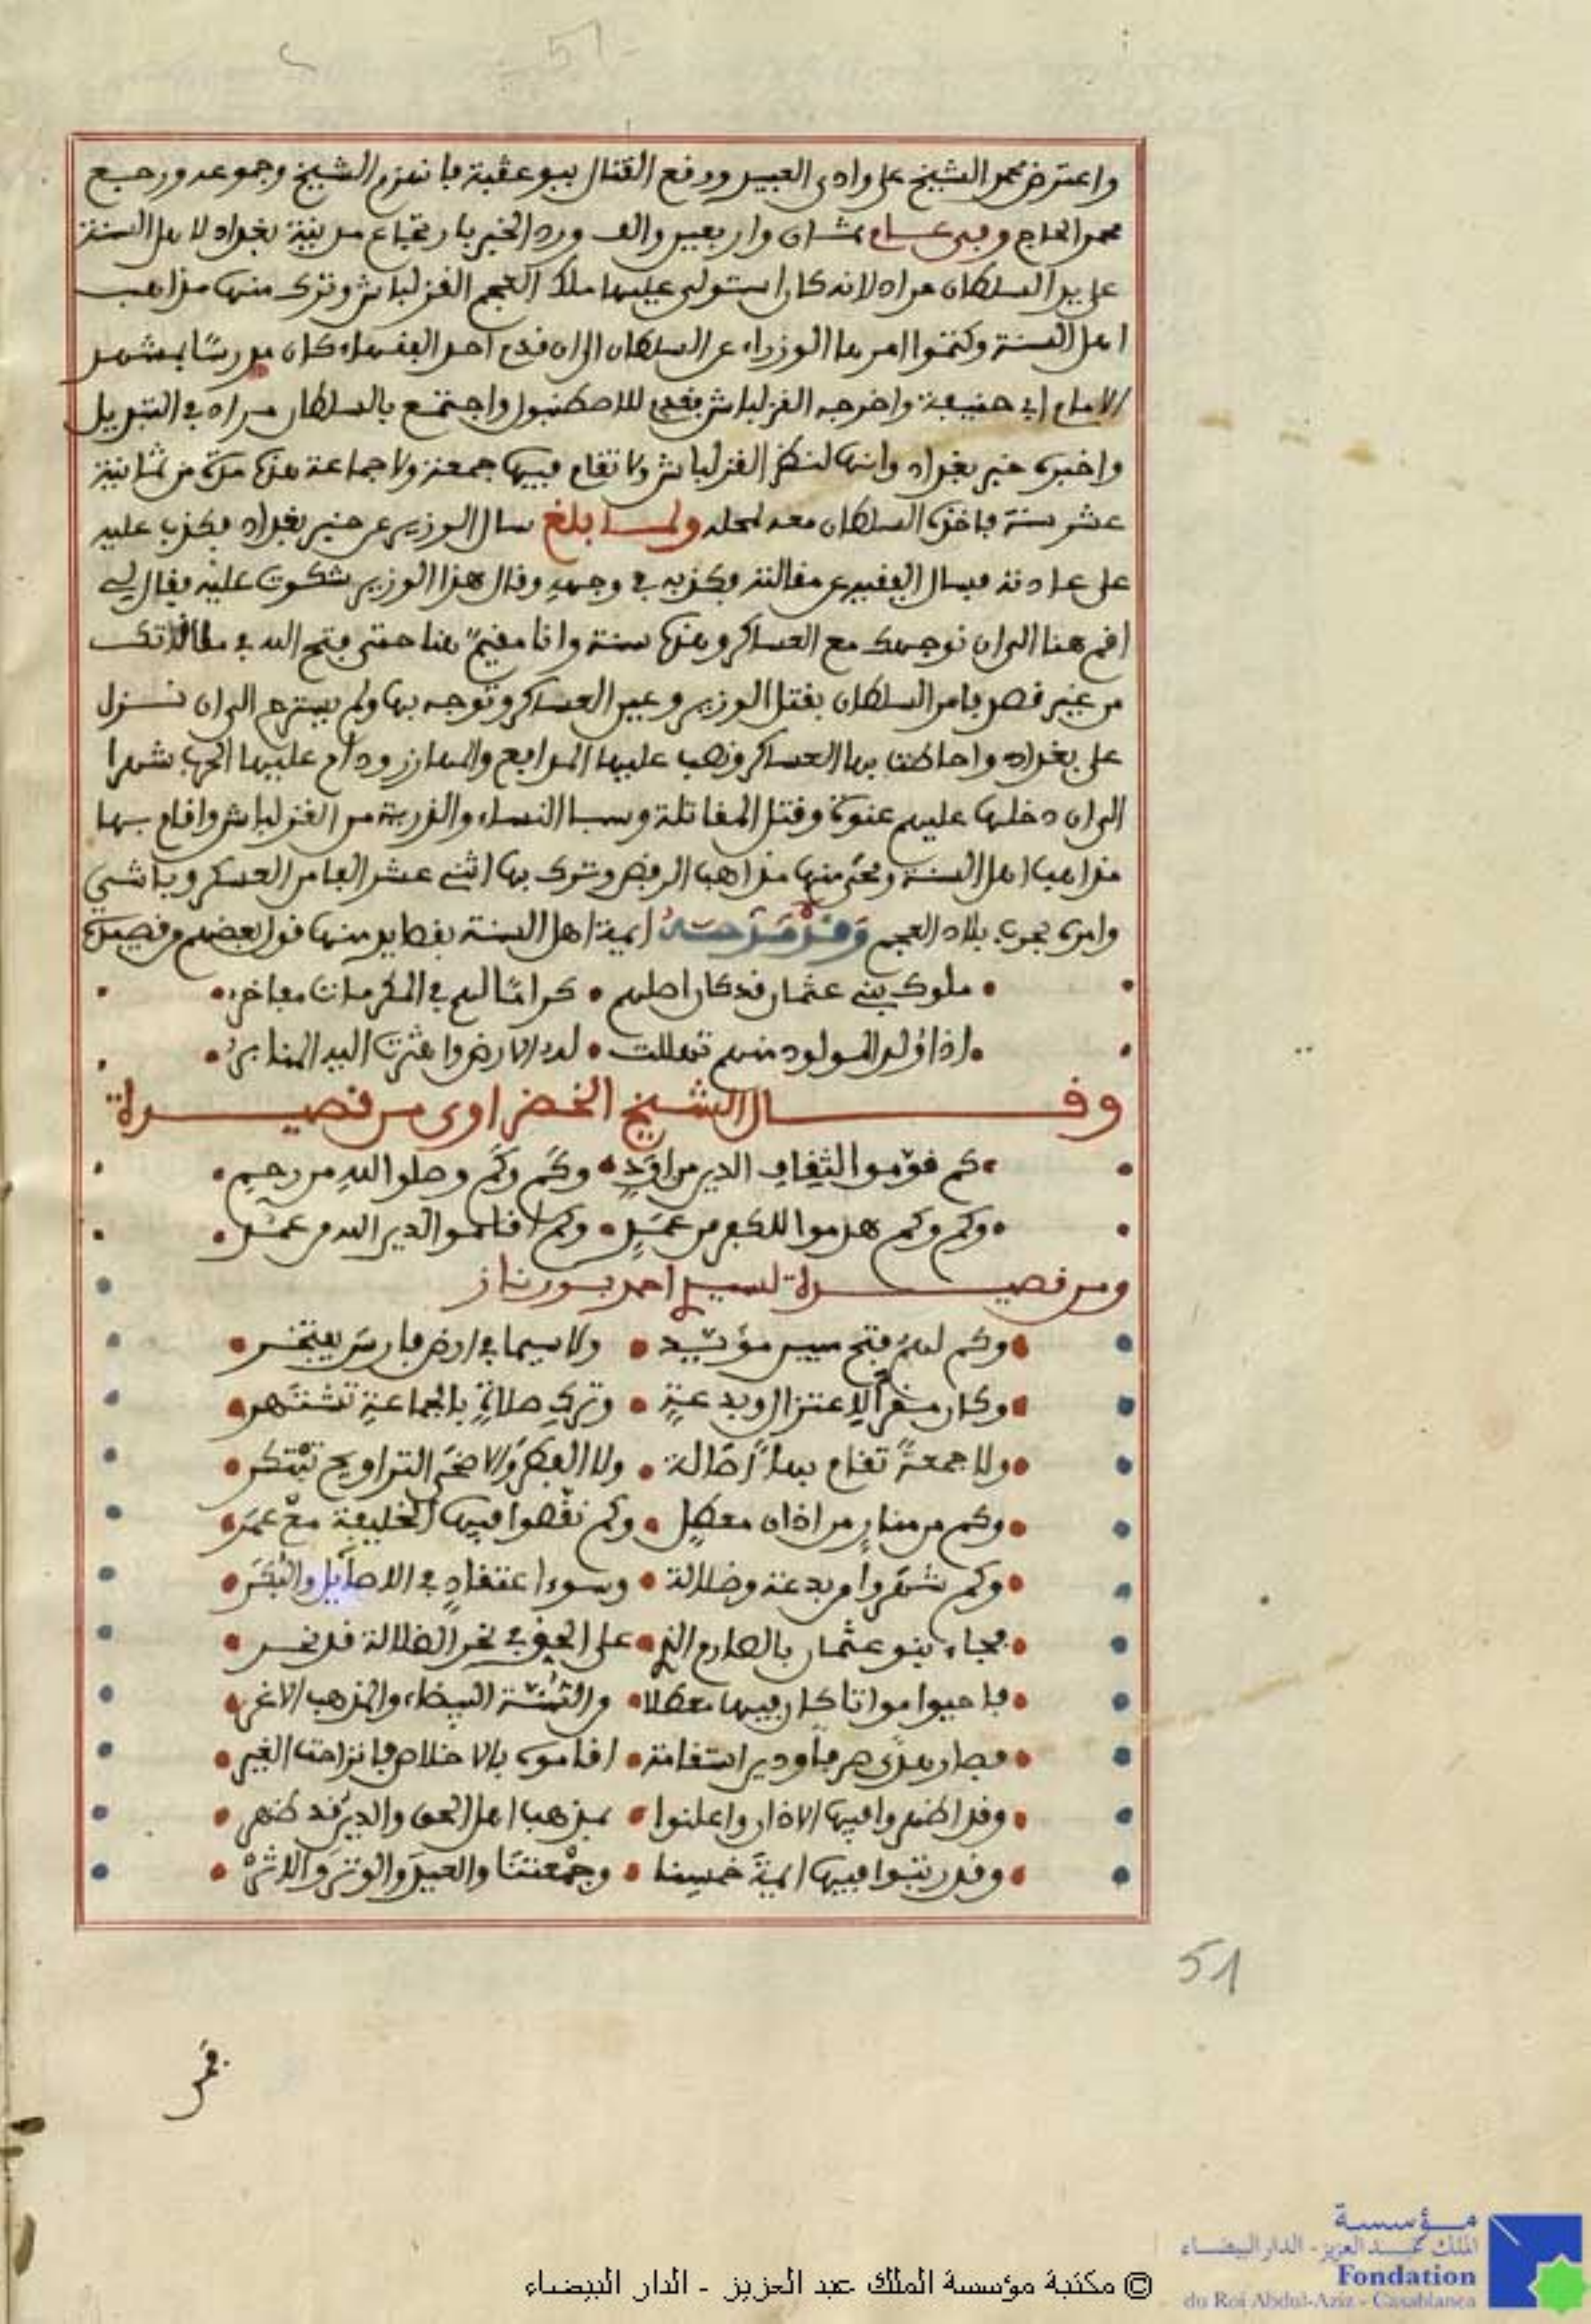 واعترض محمد الشيخ على وادى العبيد ووقع القتال ببوعقبة فانهزم الشيخ وجموعه ورجع
محمد الحاج وفى عام ثمان واربعين والف ورد الخبر بارتجاع مدينة بغداد لاهل السنة
على يد السلطان مراد لانه كان استولى عليها ملك العجم القزلباش وترك منها مذاهب
اهل السنة وكتموا امرها الوزراء عن السلطان الى ان قدم احد الفقهاء كان مدرسا بمشهد
الامام ابى حنيفة واخرجه القزلباش فقدم للاصطنبول واجتمع بالسلطان مراد فى التبديل
واخبره خبر بغداد وانها لنظر القزلباش ولا تقام فيها جمعة ولا جماعة هذه مدة من ثمانية
عشر سنة فاخذه السلطان معه لمحله ولما بلغ سال الوزير عن خبر بغداد فكذب عليه
على عادته فسال الفقيه عن مقالته فكذبه فى وجهه وقال هذا الوزير شكوت عليه فقال لى
اقم هنا الى ان نوجهك مع العساكر وهذه سنة وانا مقيم هنا حتى فتح الله فى ملاقاتك
من غير قصد فامر السلطان بقتل الوزير وعين العساكر وتوجه بها ولم يسترح الى ان نزل
على بغداد واحاطت بها العساكر ونصب عليها المدافع والمهارز ودام عليها الحرب شهرا
الى ان دخلها عليهم عنوة وقتل المقاتلة وسبا النساء والذرية من القزلباش واقام بها
مذاهب اهل السنة ومحى منها مذاهب الرفض وترك بها اثنى عشر الفا من العسكر وباشى
وامره بحرب بلاد العجم وقد مدحته ايمة اهل السنة بقصايد منها قول بعضهم من قصيدة
ملوك بنى عثمان قد كان اصلهم • كراما لهم فى المكرمات مفاخر
اذا ولد المولود منهم تهللت • له الارض واهتزت اليه المنابر
وقال الشيخ الخضراوى من قصيدة
كم قوموا لثقاف الدين من اود • وكم وكم وصلوا لله من رحم
وكم وكم هدموا للكفر من عمد • وكم اقاموا لدين الله من عمد
ومن قصيدة لسيدى احمد بورناز
وكم لهم فتح مبين مؤيد • ولا سيما فى ارض فارس يفتخر
وكان مقرا لاعتزال وبدعة • وترك صلاة بالجماعة تشتهر
ولا جمعة تقام بها اصالة • ولا الفطر والاضحى التراويح تبتكر
وكم من منار من اذان معطل • وكم نقصوا فيها الخليفة مع عمر
وكم شهروا من بدعة وضلالة • وسوء اعتقاد فى الاصايل والبكر
فجاء بنو عثمان بالصارم الذى • على الحق فى نحر الضلالة قد نحر
فاحيوا مواتا كان فيها معطلا • من السنة البيضاء والمذهب الاغر
فصار هدى صرفا ودين استقامة • اقاموه بالاخلاص فانزاحت الغير
وقد اظهروا فيها الاذان واعلنوا • بمذهب اهل الحق والدين قد ظهر
وقد رتبوا فيها ايمة خمسنا • وجمعتنا والعيد والوتر والاثر
51
فمر
مؤسسة
الملك عبد العزيز - الدار البيضاء
Fondation
du Roi Abdul-Aziz - Casablanca
© مكتبة مؤسسة الملك عبد العزيز - الدار البيضاء